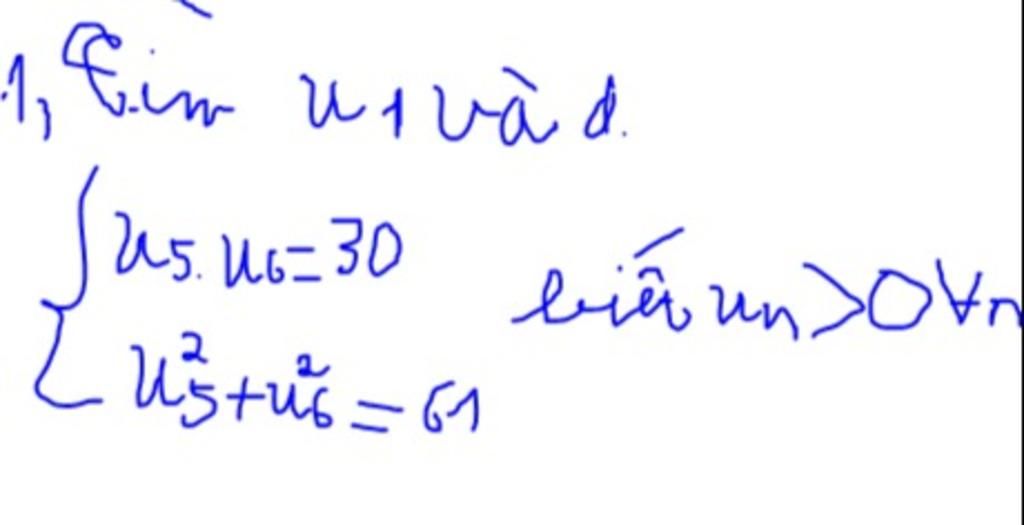 1, Tìm u1 và d.
{ u5.u6=30
u5²+u6²=61
biết un>0 ∀n